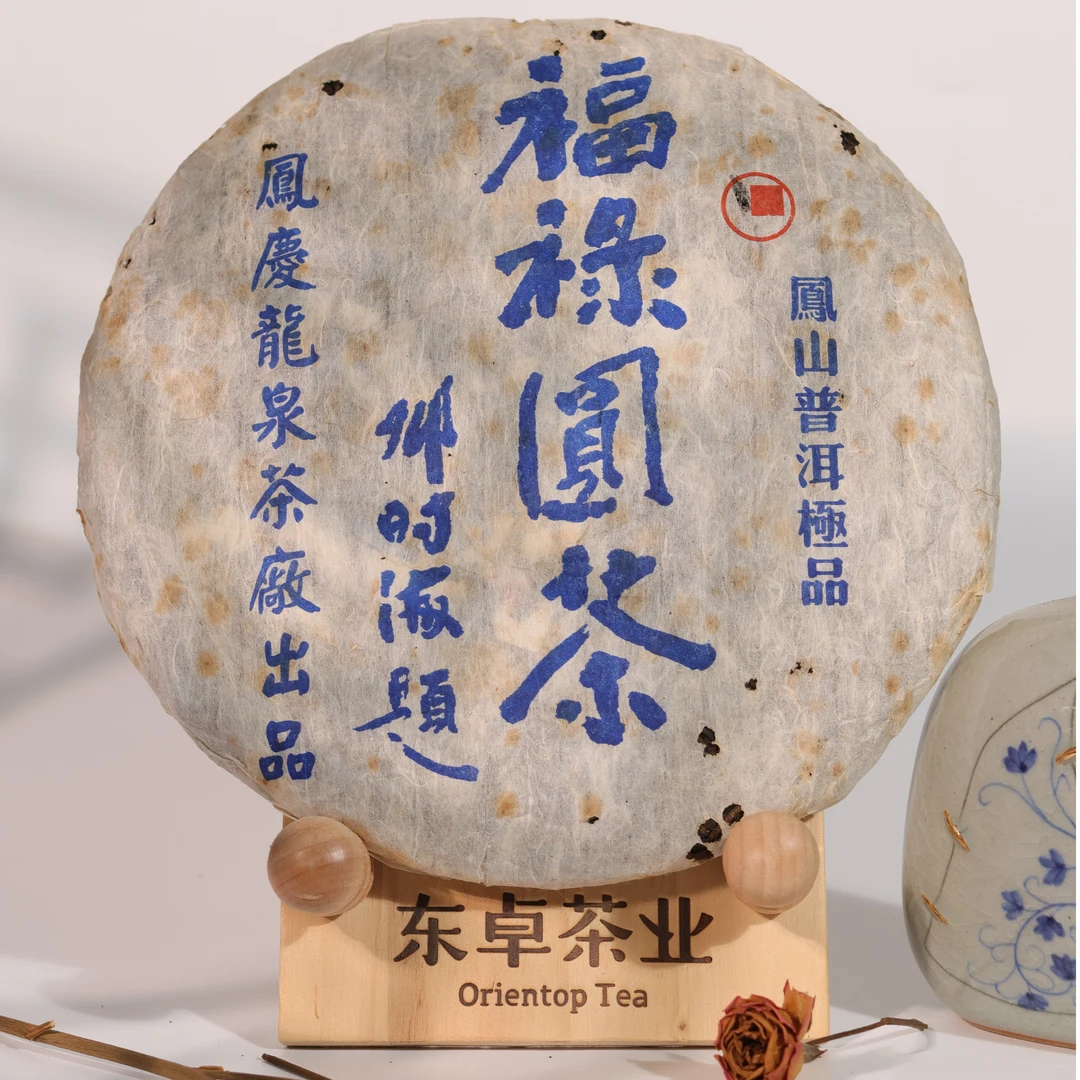 鳳山普洱極品
福祿圓茶
鄧时海題
鳳慶龍泉茶廠出品
东卓茶业
Orientop Tea